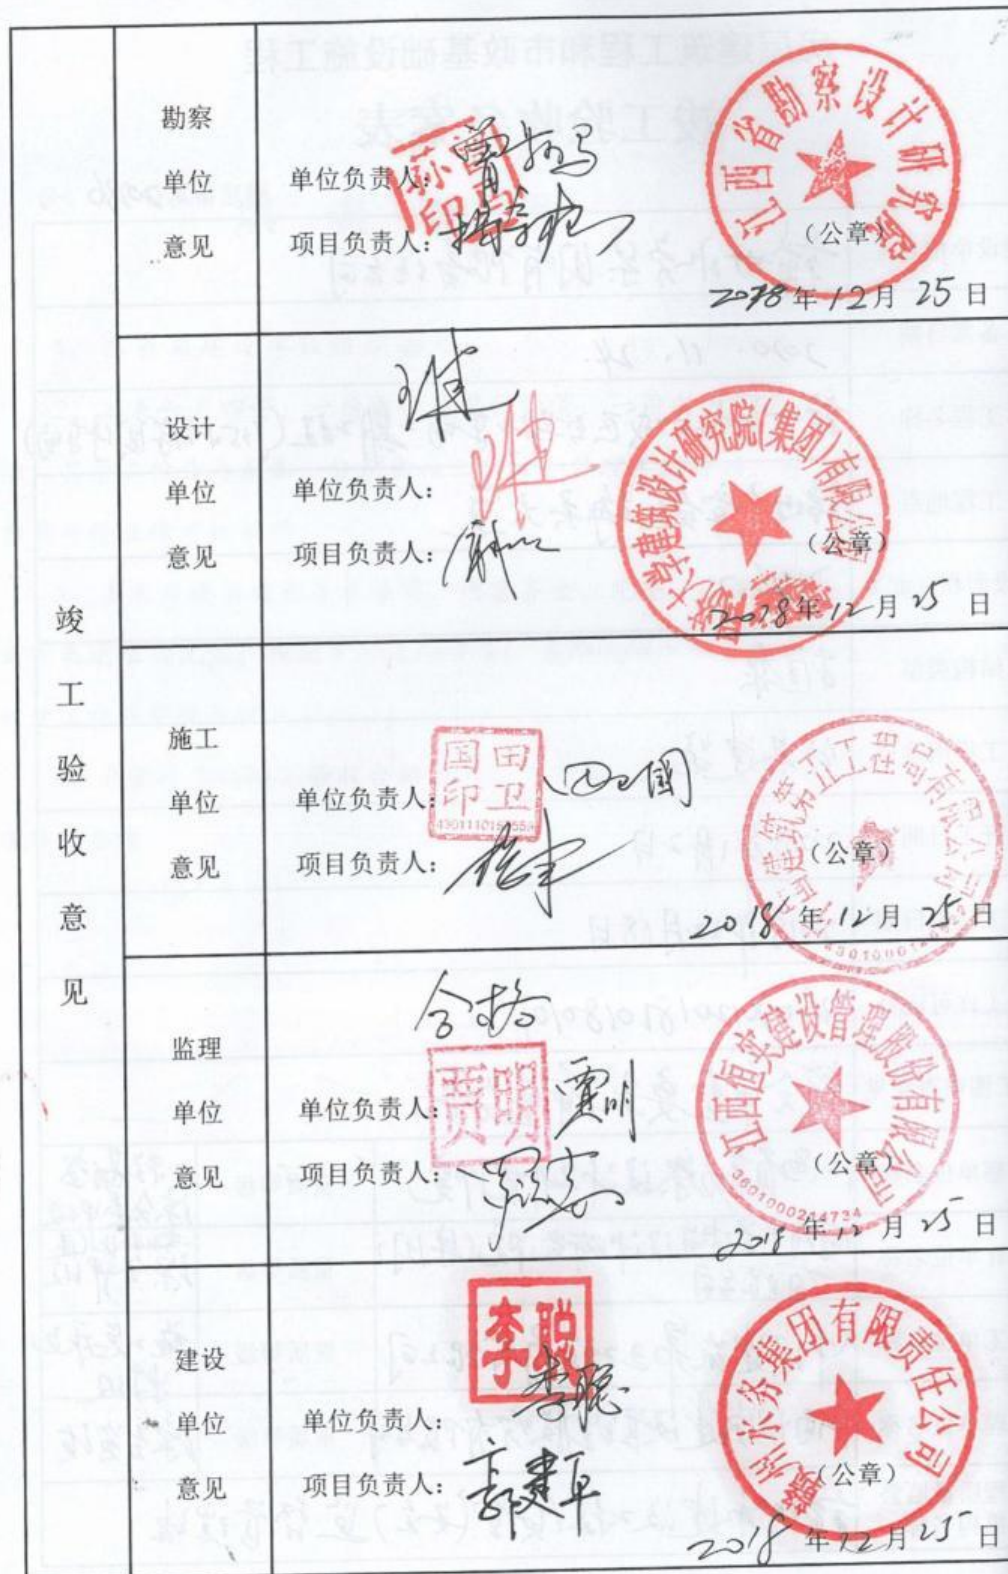 竣工验收意见
勘察单位意见
单位负责人：
项目负责人：
江西省勘察设计研究院
（公章）
2018年12月25日
设计单位意见
单位负责人：
项目负责人：
大学建筑设计研究院(集团)有限公司
（公章）
2018年12月25日
施工单位意见
国田印卫
单位负责人：田卫國
项目负责人：
建筑第工程有限公司
（公章）
2018年12月25日
监理单位意见
合格
贾明
单位负责人：贾明
项目负责人：
江西恒实建设管理股份有限公司
3601000214734
（公章）
2018年12月25日
建设单位意见
李聪
单位负责人：李聪
项目负责人：郭建军
赣州水务集团有限责任公司
（公章）
2018年12月25日